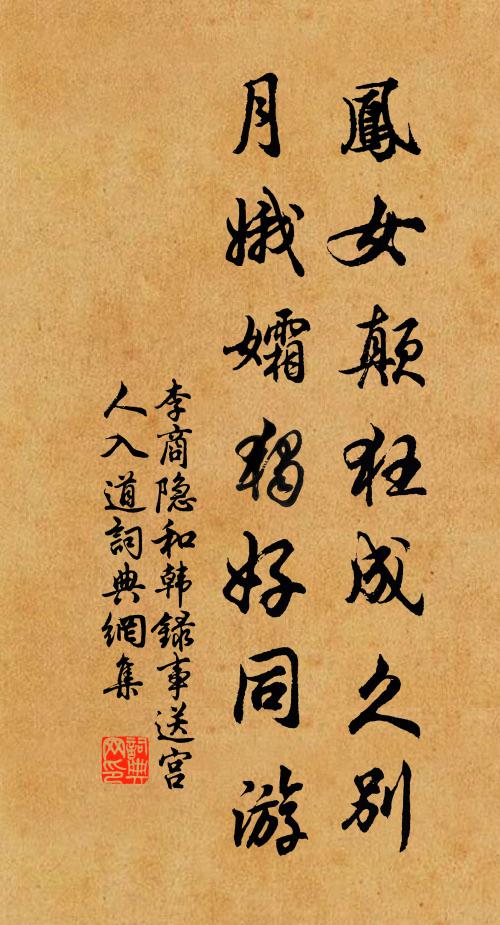 鳳女顛狂成久別
月娥孀獨好同游
李商隐和韩録事送宮
人入道詞典網集
詞典
网印